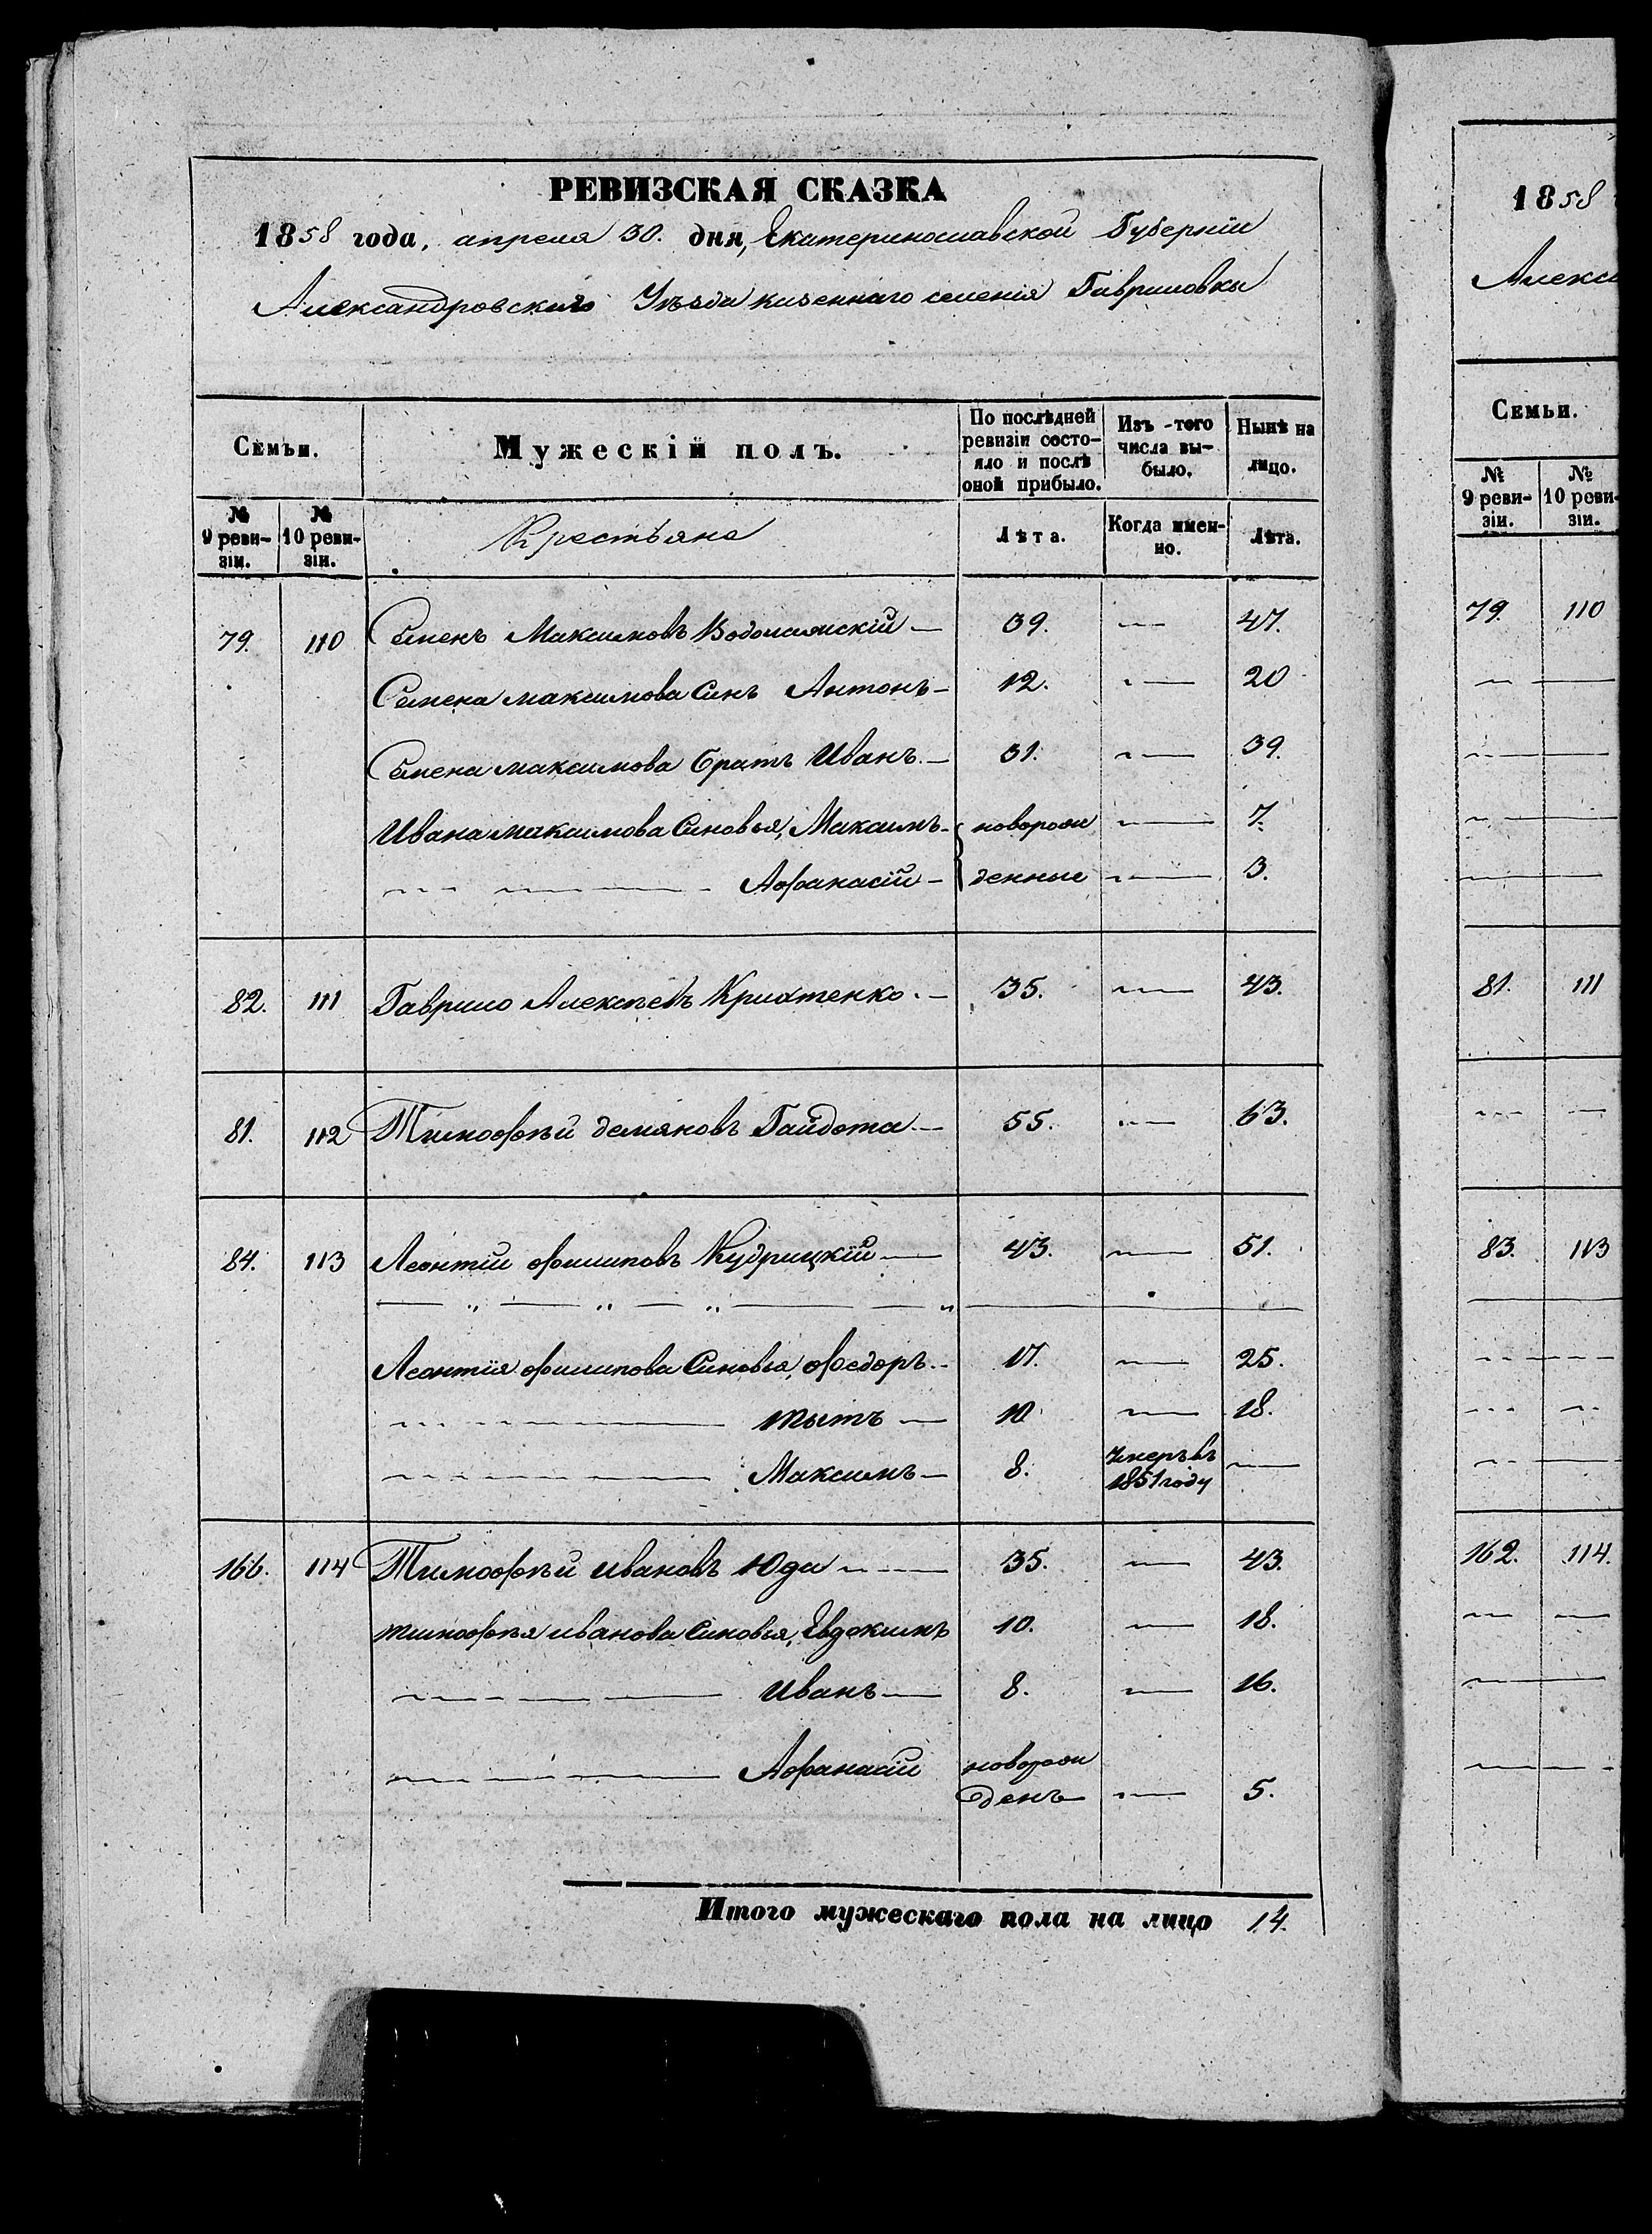 РЕВИЗСКАЯ СКАЗКА
1858 года, апреля 30. дня, Екатеринославской Губернїи
Александровскаго Уѣзда казеннаго селенія Гавриловки
Семьи. Мужескій полъ. По послѣдней ревизіи состояло и послѣ оной прибыло. Изъ того числа выбыло. Нынѣ на лицо.
№ 9 ревизіи. № 10 ревизіи. Крестьяне Лѣта. Когда именно. Лѣта.
79. 110 Семенъ Максимовъ — 39. — 47.
Семена максимова Синъ Антонъ — 12. — 20
Семена максимова братъ Иванъ. — 31. — 39.
Ивана максимова Синовья, Максимъ — новорож — 7.
— Афанасій — денные — 3.
82. 111 Гаврило Алексѣевъ — 35. — 43.
81. 112 Тимофѣй демяновъ Гайдота — 55. — 63.
84. 113 Леонтій филиповъ Кудрицкій — 43. — 51.
— „ — „ — „ — „
Леонтія филипова Синовья, Федоръ. — 17. — 25.
— титъ — 10 — 18.
— Максимъ — 8. Умеръ въ 1851 году —
166. 114 Тимофѣй ивановъ Юда — 35. — 43.
тимофѣя иванова Синовья, Евдокимъ 10. — 18.
— иванъ — 8. — 16.
— Афанасій новорож
денъ — 5.
Итого мужескаго пола на лицо 14.
1858
Алекса
Семьи.
№ 9 ревизіи. № 10 ревизіи.
79. 110
81. 111
83. 113
162. 114.